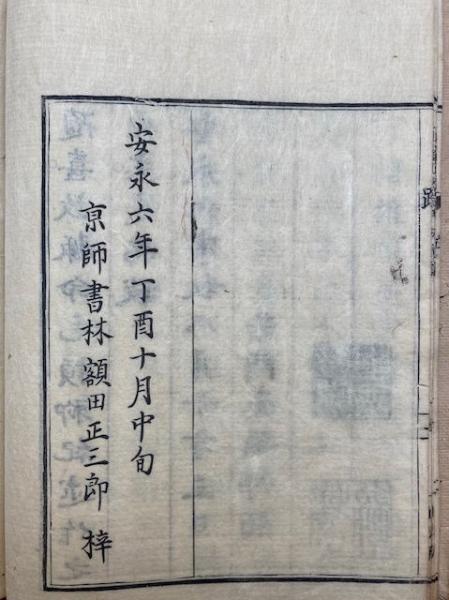 跋
安永六年丁酉十月中旬
京師書林額田正三郎 梓